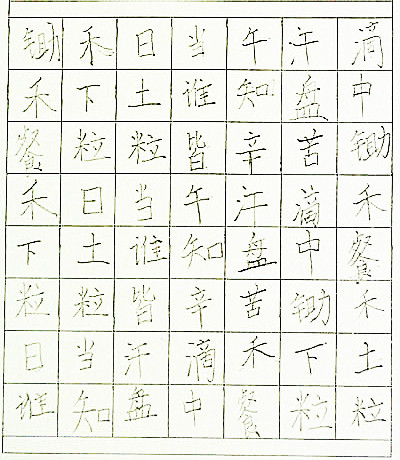 锄禾日当午汗滴
禾下土谁知盘中
餐粒粒皆辛苦锄
禾日当午汗滴禾
下土谁知盘中餐
粒粒皆辛苦锄禾
日当汗滴禾下土
谁知盘中餐粒粒